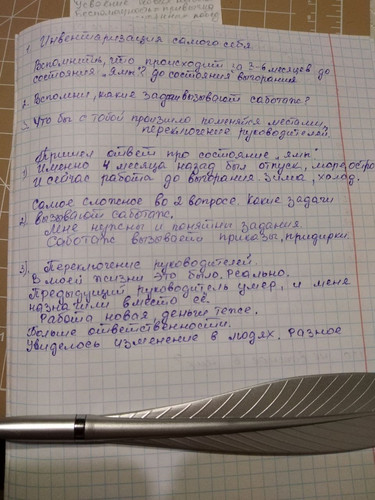 1. Инвентаризация самого себя.
Вспомнить, что происходит за 3-6 месяцев до
состояния „ялк"? до состояния выгорания
2. Вспомни, какие задачи вызывают саботаж?
3. Что бы с тобой произошло поменятся местами,
переключение руководителей.
Пришел ответ про состояние „ялк"
1) Именно 4 месяца назад был отпуск, море, остров
И сейчас работа до выгорания. Зима, холод.
Самое сложное во 2 вопросе. Какие задачи
2) вызывают саботаж.
Мне нужны и понятны задания
Саботаж вызывают приказы, придирки.
3) Переключение руководителей.
В моей жизни это было. Реально.
Предыдущий руководитель умер, и меня
назначили вместо её.
Работа новая, деньги те же.
Больше ответственности.
Увиделось изменение в людях. Разное